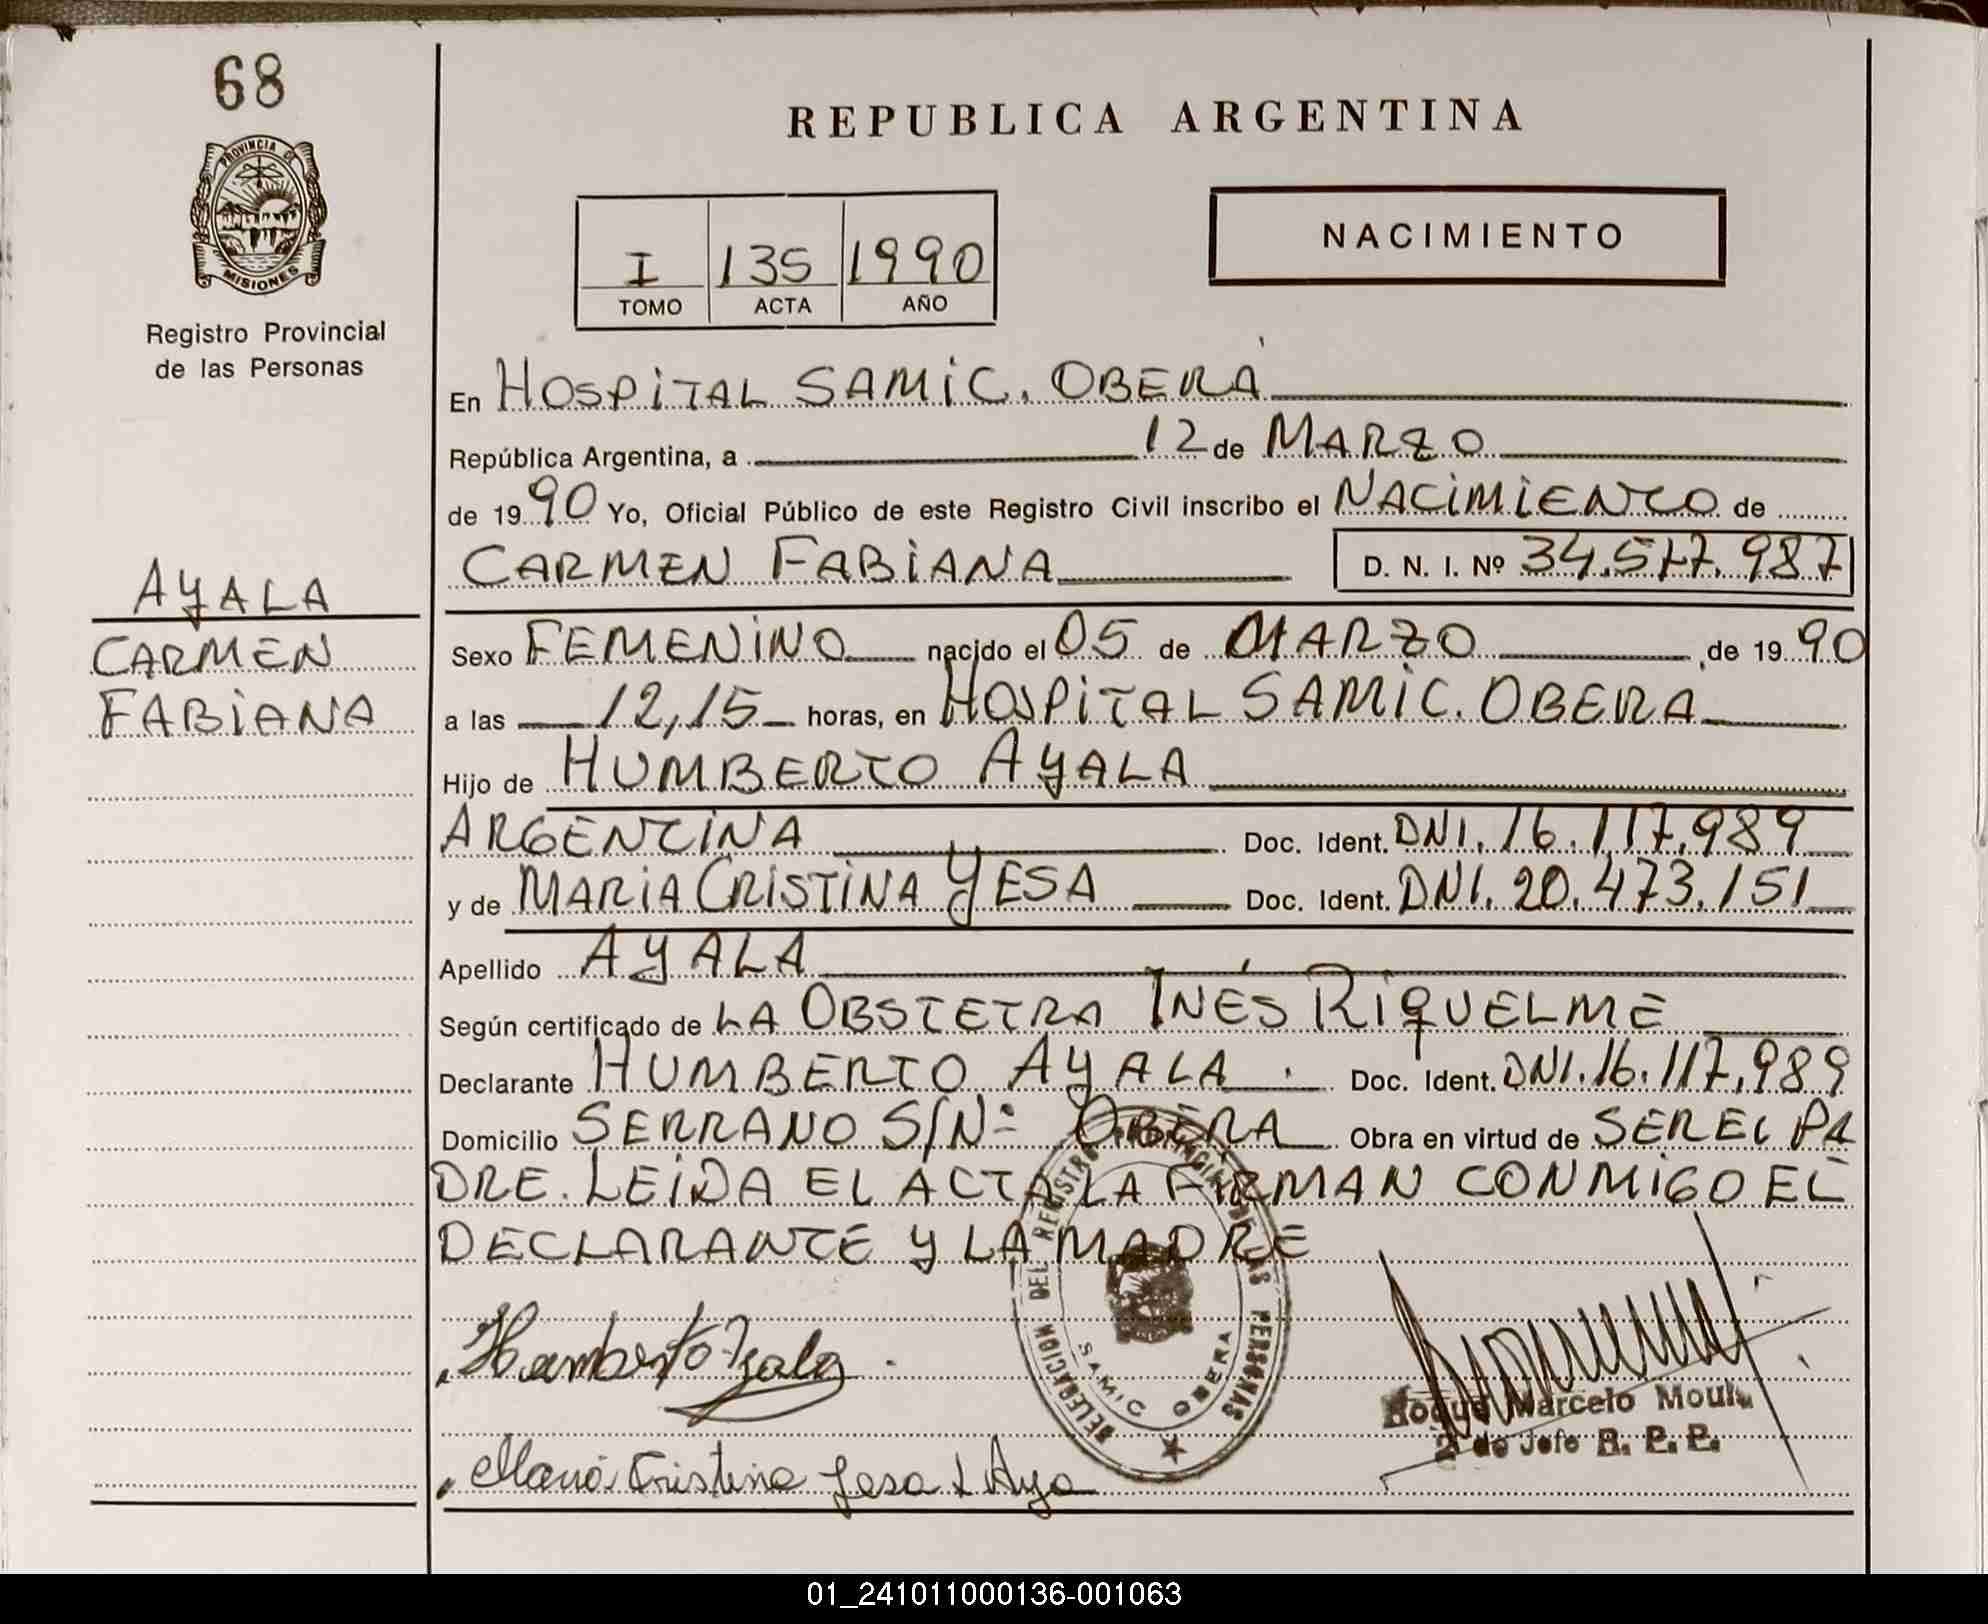 68
PROVINCIA DE
MISIONES
Registro Provincial
de las Personas
AYALA
CARMEN
FABIANA
REPUBLICA ARGENTINA
I 135 1990
TOMO ACTA AÑO
NACIMIENTO
En HOSPITAL SAMIC. OBERÁ
República Argentina, a 12 de MARZO
de 1990 Yo, Oficial Público de este Registro Civil inscribo el NACIMIENTO de
CARMEN FABIANA D. N. I. Nº 34.517.987
Sexo FEMENINO nacido el 05 de MARZO de 1990
a las 12,15 horas, en HOSPITAL SAMIC. OBERA
Hijo de HUMBERTO AYALA
ARGENTINA Doc. Ident. DNI. 16.117.989
y de MARIA CRISTINA YESA Doc. Ident. DNI. 20.473.151
Apellido AYALA
Según certificado de LA OBSTETRA INÉS RIQUELME
Declarante HUMBERTO AYALA. Doc. Ident. DNI. 16.117.989
Domicilio SERRANO S/Nº OBERA Obra en virtud de SER EL PA
DRE. LEIDA EL ACTA LA FIRMAN CONMIGO EL
DECLARANTE Y LA MADRE
DELEGACION DEL REGISTRO PROVINCIAL DE LAS PERSONAS
SAMIC OBERA
Humberto Ayala
Maria Cristina Yesa
Roque Marcelo
2 do Jefe R. P. P.
01_241011000136-001063